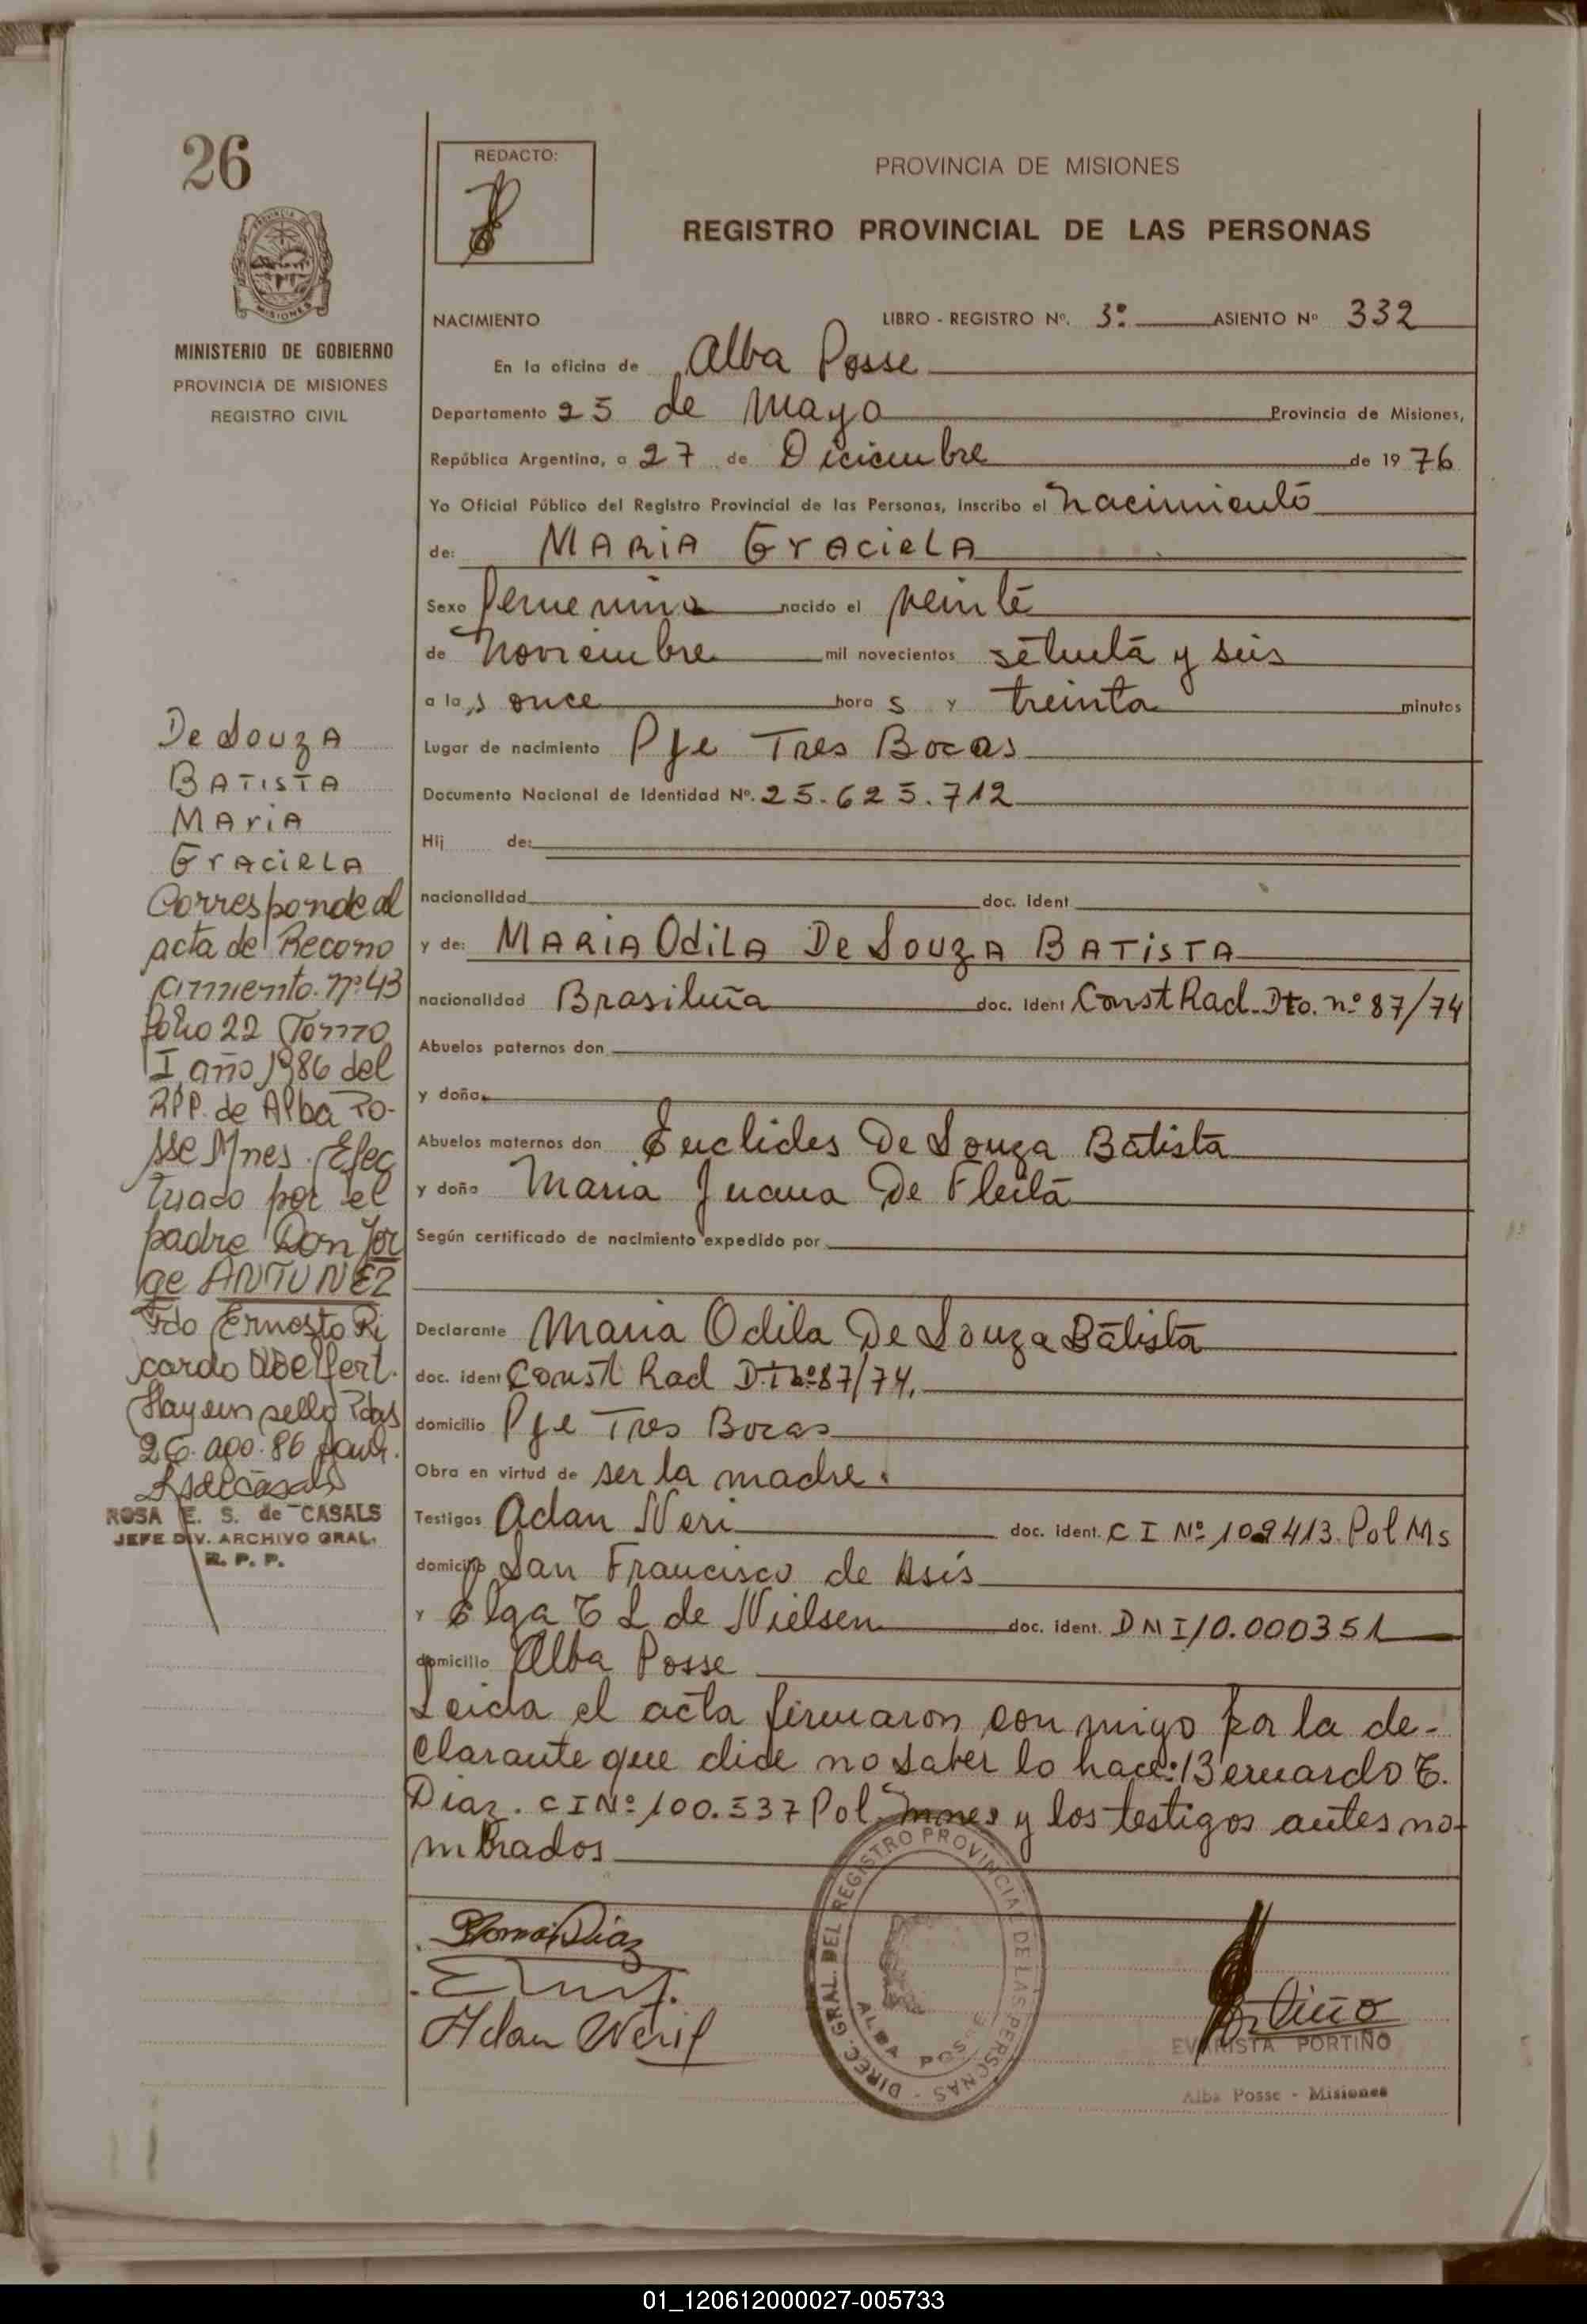 26
REDACTO:
PROVINCIA DE MISIONES
REGISTRO PROVINCIAL DE LAS PERSONAS
MISIONES
MINISTERIO DE GOBIERNO
PROVINCIA DE MISIONES
REGISTRO CIVIL
NACIMIENTO LIBRO - REGISTRO Nº. 3º ASIENTO Nº 332
En la oficina de Alba Posse
Departamento 25 de Mayo Provincia de Misiones,
República Argentina, a 27 de Diciembre de 1976
Yo Oficial Público del Registro Provincial de las Personas, inscribo el nacimiento
de: MARIA GrACieLA
Sexo femenino nacido el veinte
de Noviembre mil novecientos setenta y seis
a las once horas y treinta minutos
Lugar de nacimiento Pje Tres Bocas
Documento Nacional de Identidad Nº. 25.625.712
Hij de:
nacionalidad doc. ident
y de: MARIA OdiLA De SouzA BATiSTA
nacionalidad Brasileña doc. ident Const Rad. Dto. nº 87/74
Abuelos paternos don
y doña
Abuelos maternos don Euclides De Souza Batista
y doña Maria Juana De Fleita
Según certificado de nacimiento expedido por
Declarante Maria Odila De Souza Batista
doc. ident Const Rad D.T nº 87/74.
domicilio Pje Tres Bocas
Obra en virtud de ser la madre.
Testigos Adan Neri doc. ident. C I Nº 109413. Pol Ms
domicilio San Francisco de Asís
y Elga E L de Nielsen doc. ident. DNI 10.000351
domicilio Alba Posse
Leida el acta firmaron conmigo por la de-
clarante que dice no saber lo hace: Bernardo E.
Diaz. CI Nº 100.537 Pol. Mnes y los testigos antes no-
mbrados
De SouzA
BATISTA
MAriA
GrACieLA
Corresponde al
acta de Recono
cimiento. nº 43
folio 22 Tomo
I año 1986 del
RPP. de Alba Po-
sse Mnes. Efec
tuado por el
padre Don Jor
ge ANTUNEZ
Fdo Ernesto Ri
cardo
Hay un sello Pdas
26. ago. 86
ROSA E. S. de CASALS
JEFE DIV. ARCHIVO GRAL.
R. P. P.
Diaz
Adan Neri
DIREC. GRAL. DEL REGISTRO PROVINCIAL DE LAS PERSONAS -
ALBA POSSE
Portiño
EVARISTA PORTIÑO
Alba Posse - Misiones
01_120612000027-005733